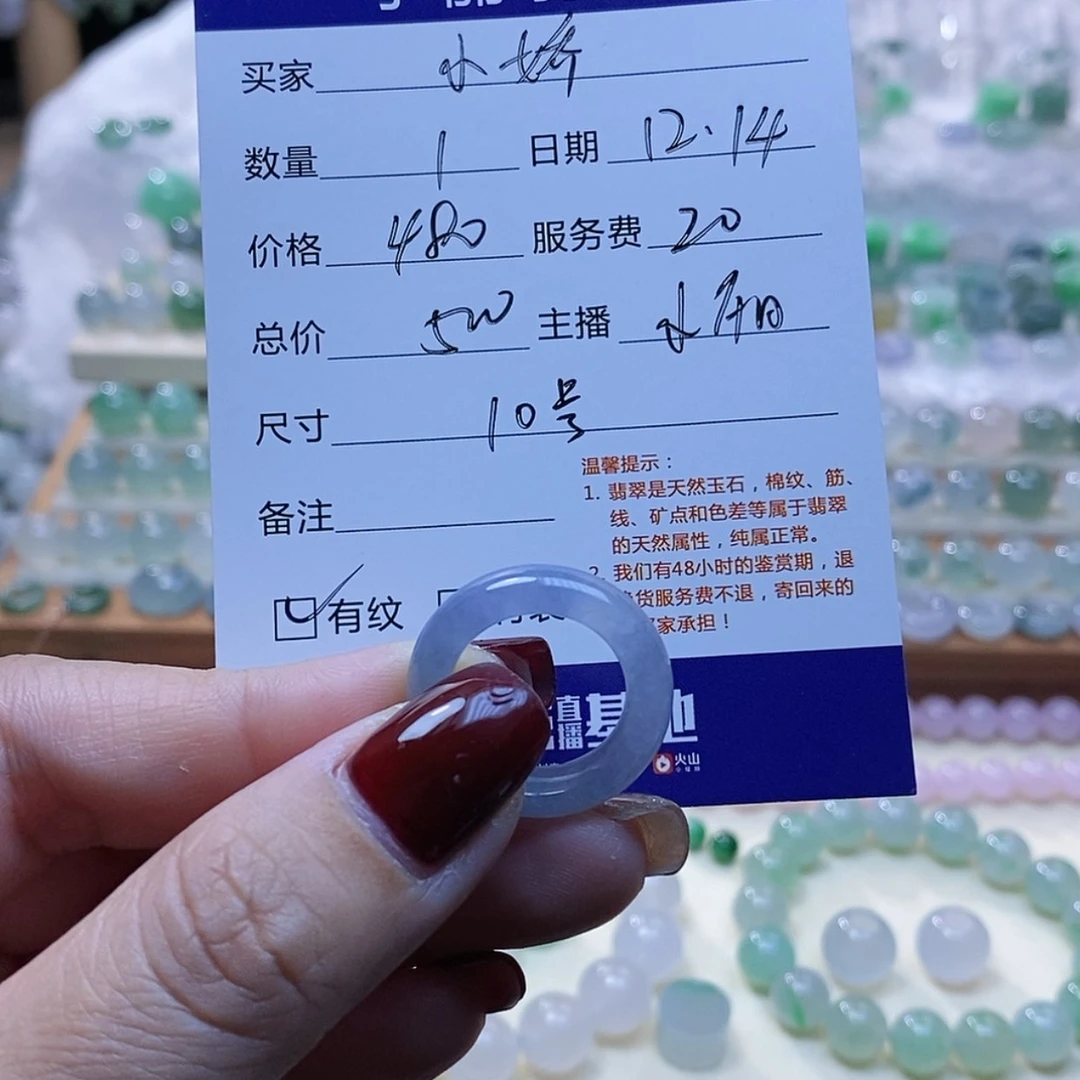 买家 小娇
数量 1 日期 12.14
价格 480 服务费 20
总价 500 主播
尺寸 10号
备注
温馨提示：
1. 翡翠是天然玉石，棉纹、筋、
线、矿点和色差等属于翡翠
的天然属性，纯属正常。
2. 我们有48小时的鉴赏期，退
货服务费不退，寄回来的
家承担！
有纹
直播基地
火山